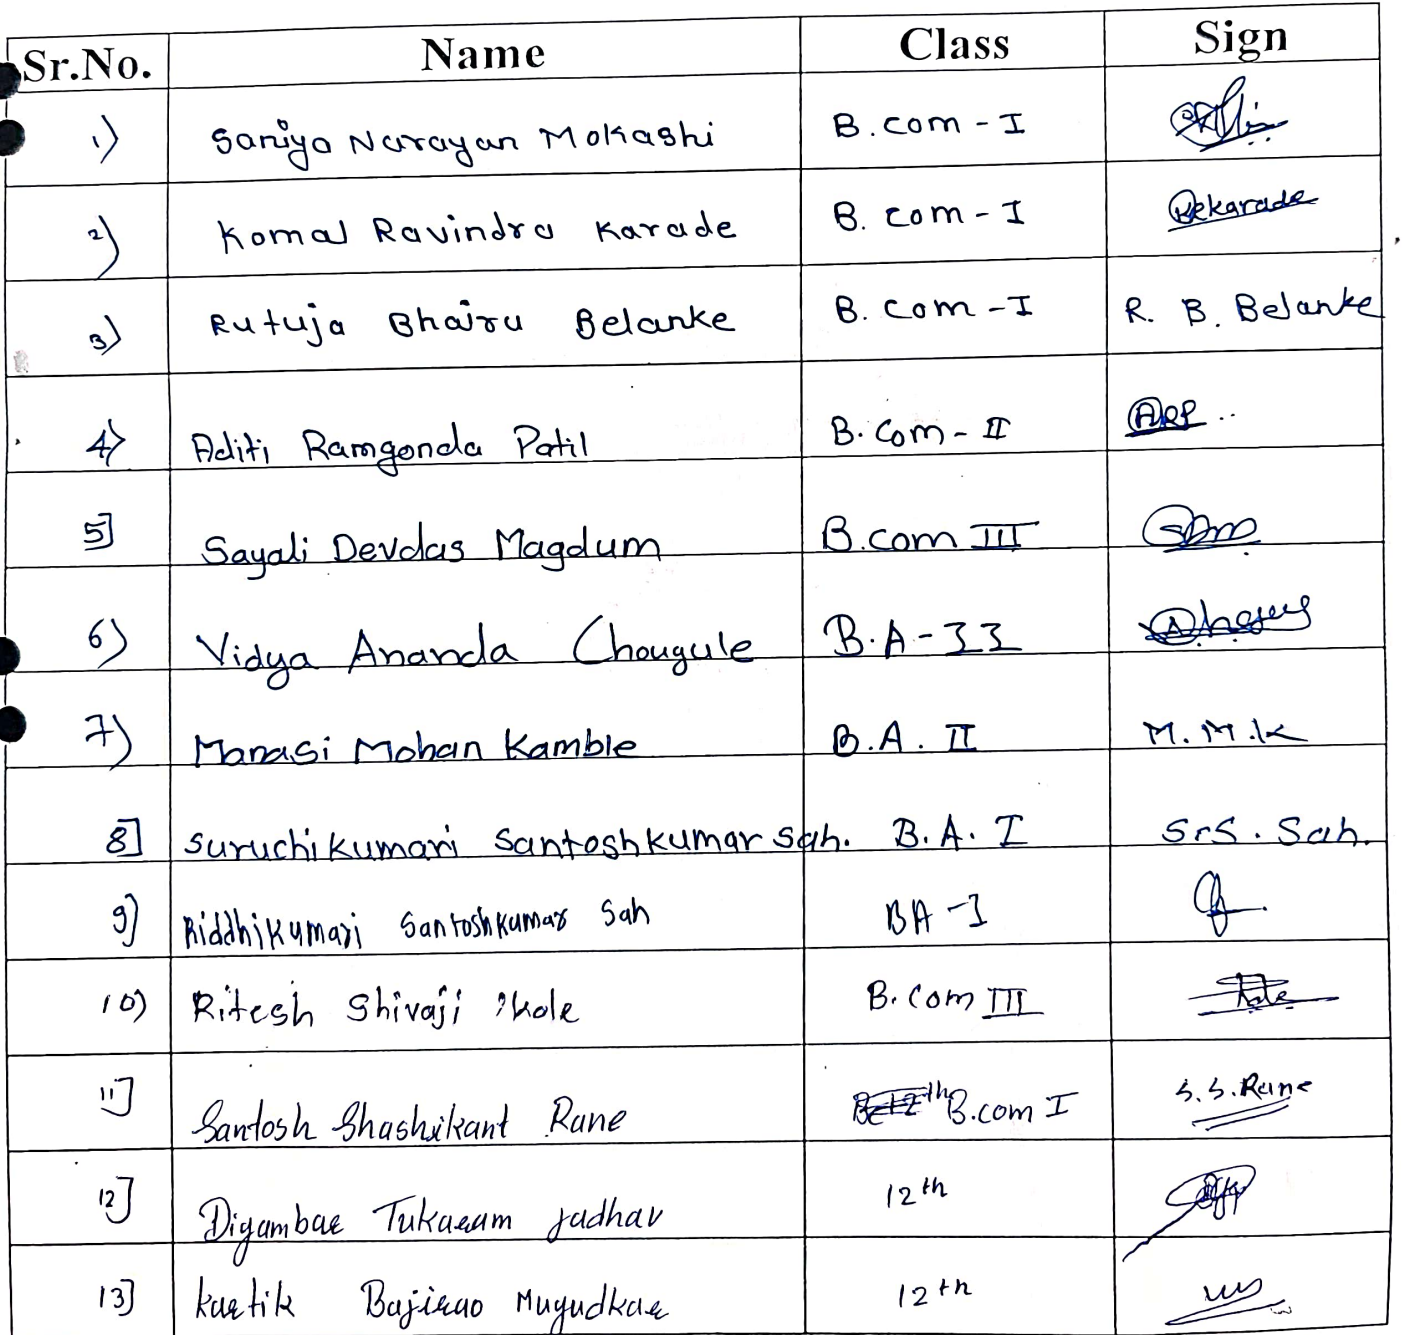 Sr.No. Name Class Sign
1) Saniya Narayan Mokashi B.com - I
2) Komal Ravindra Karade B. com - I Rekarade
3) Rutuja Bhairu Belanke B. com - I R. B. Belanke
4) Aditi Ramgonda Patil B. Com - II ARP ..
5] Sayali Devdas Magdum B.com III SDm
6) Vidya Ananda Chougule B.A - II
7) Manasi Mohan Kamble B.A. II M.M.K
8] Suruchikumari Santoshkumar Sah. B.A. I SrS. Sah.
9] Riddhikumari Santoshkumar Sah BA - I
10) Ritesh Shivaji B.com III
11] Santosh Shashikant Rane B.com I S.S.Rane
12] Digambar Tukaram Jadhav 12th
13] Kartik Bajirao Mugudkar 12th